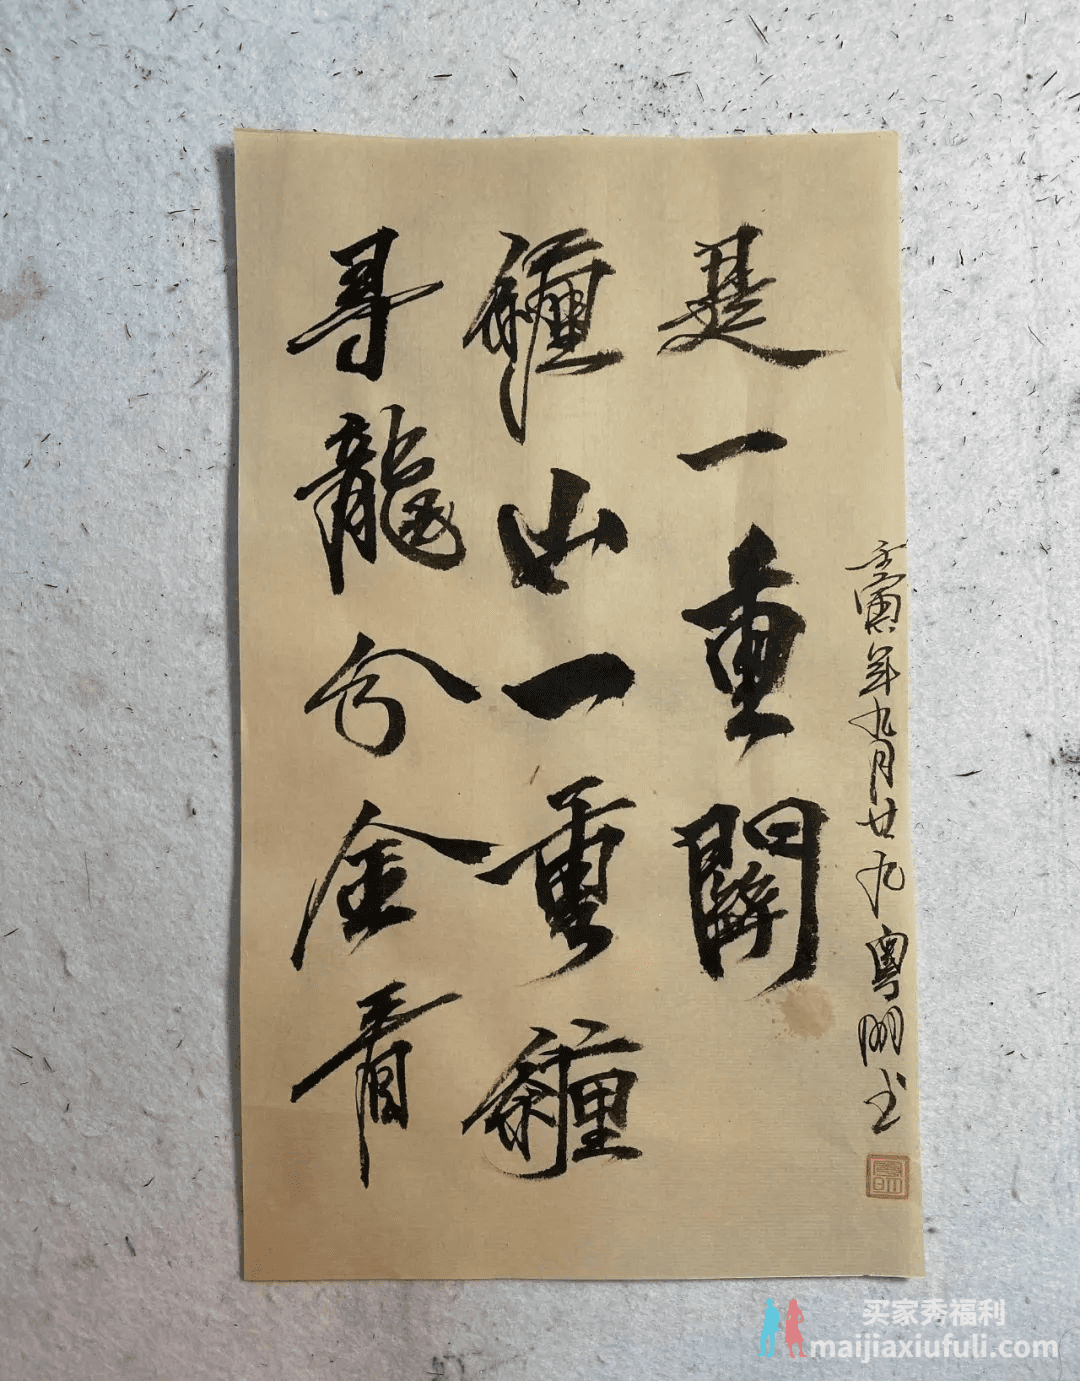 尋龍分金看
纏山一重纏
是一重關
壬寅年九月廿九粤明书
买家秀福利
maijiaxiufuli.com